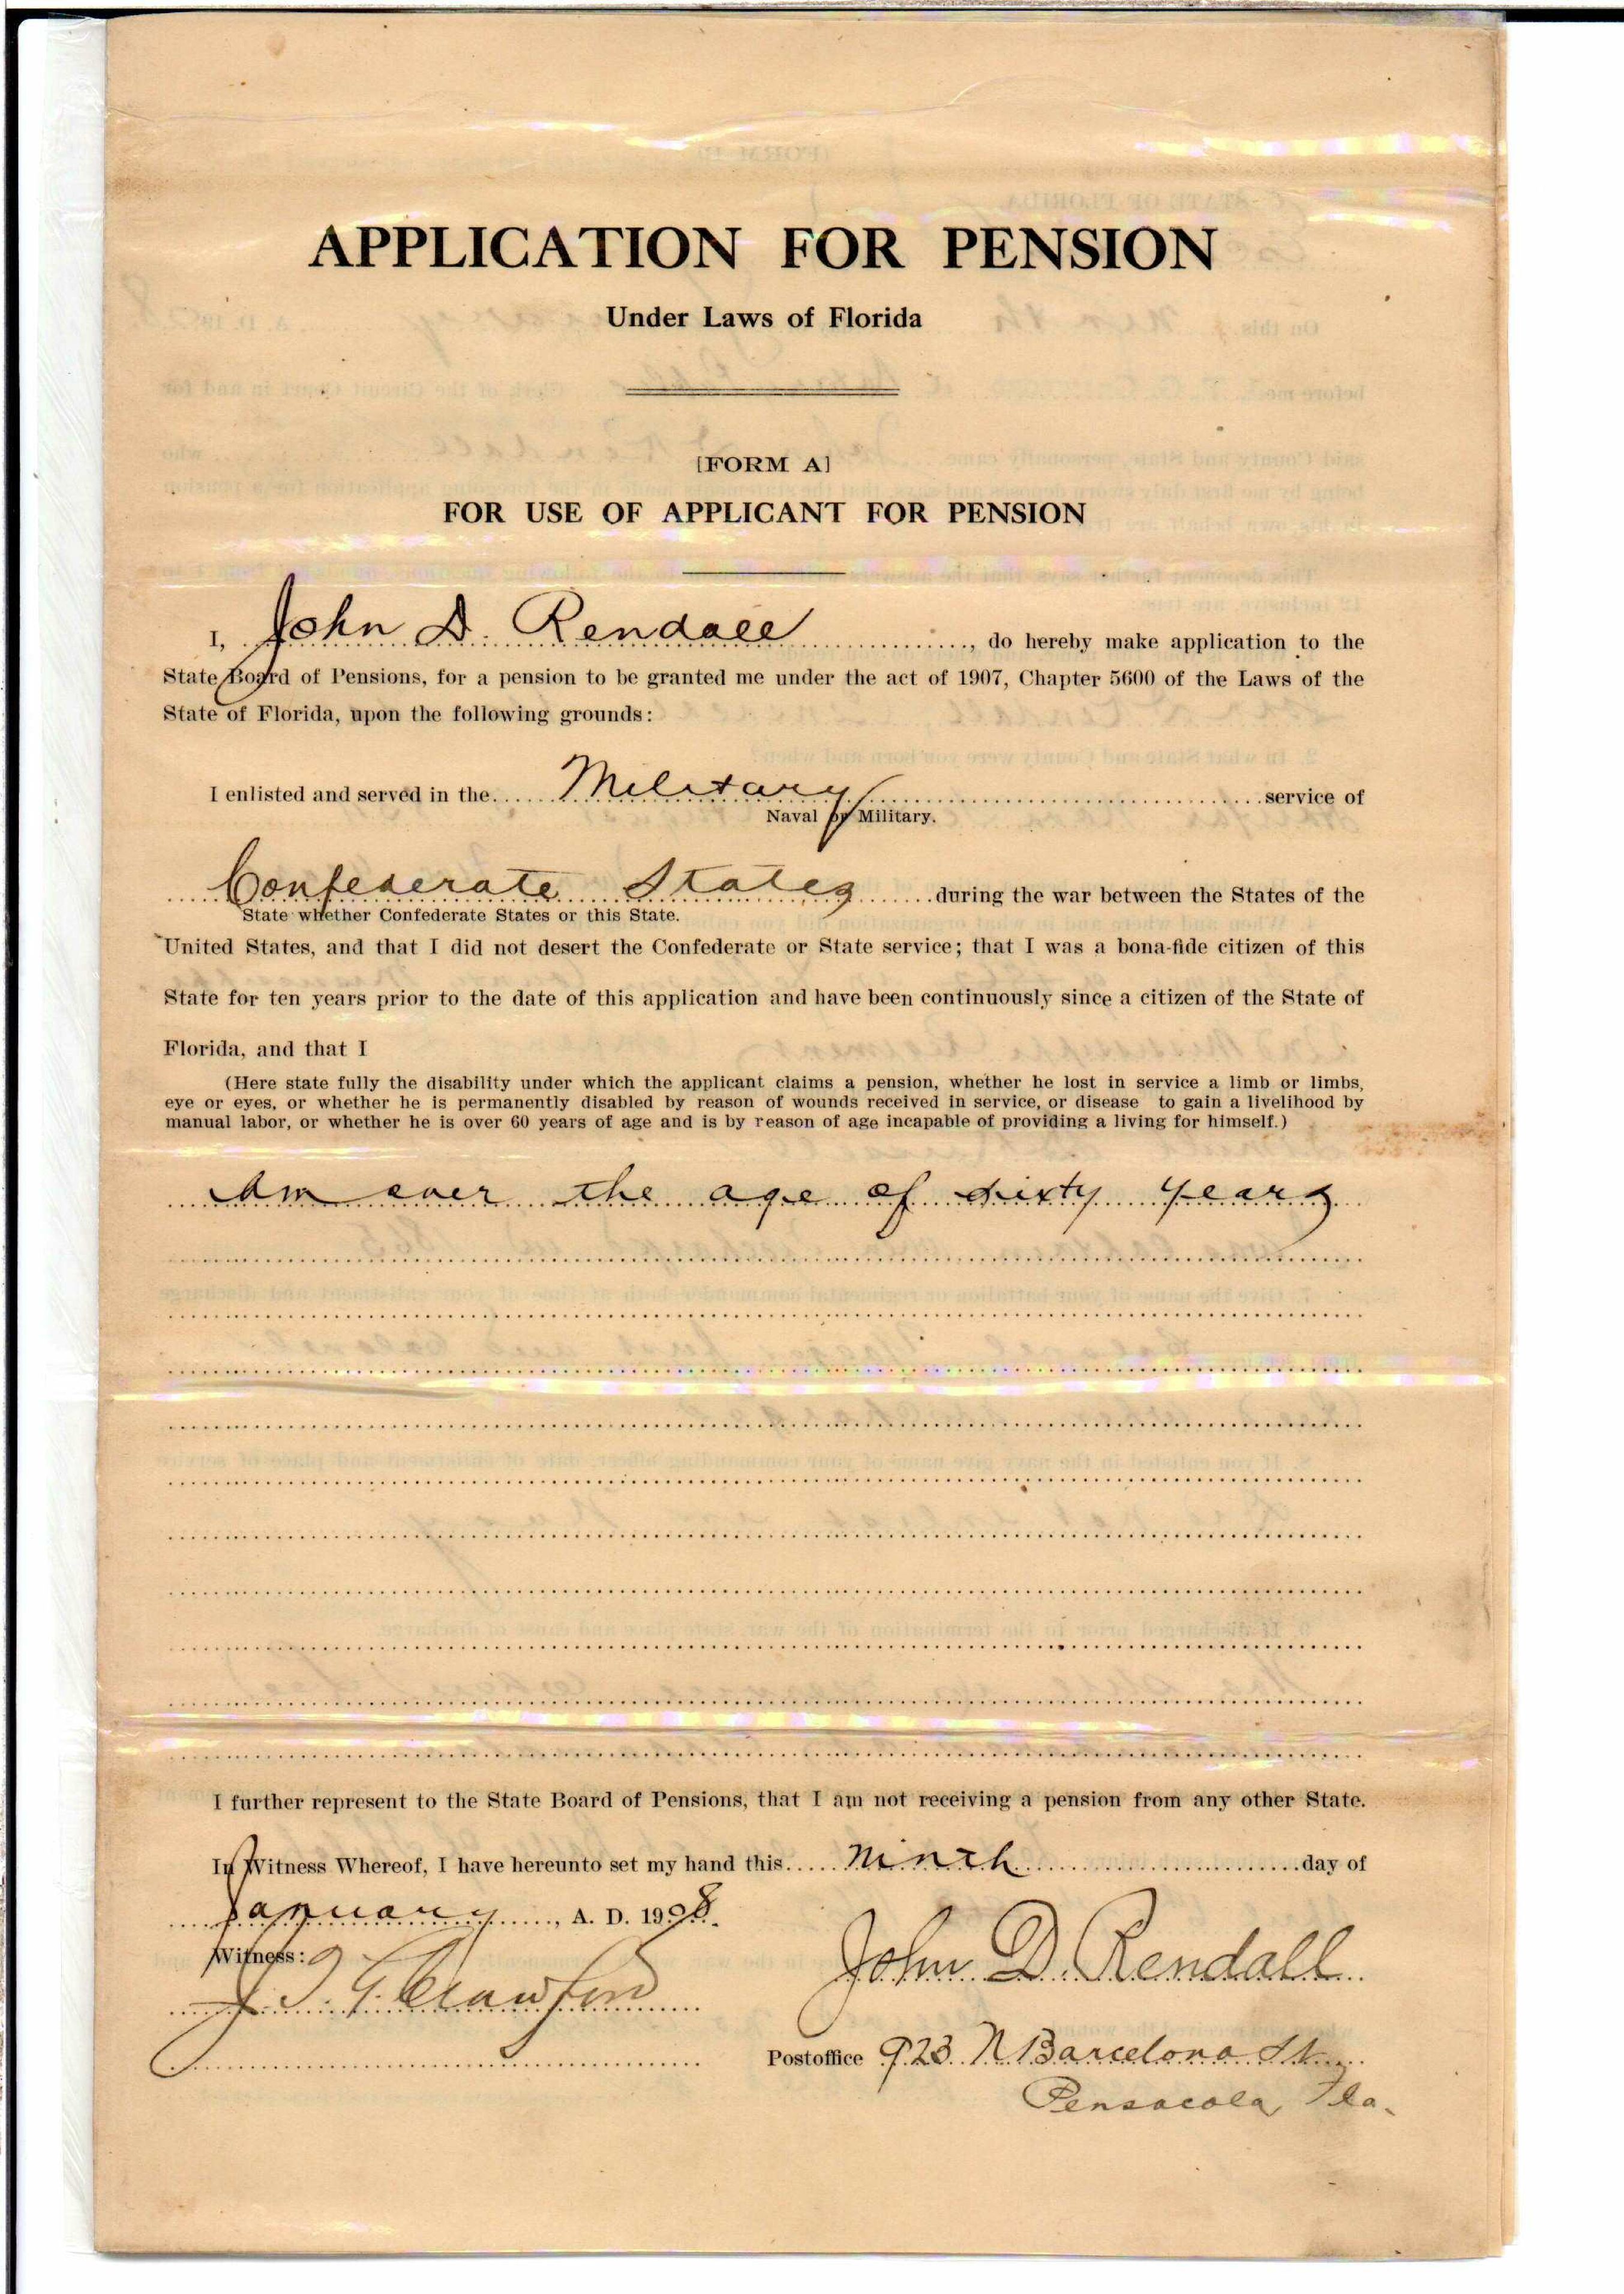 APPLICATION FOR PENSION
Under Laws of Florida
[FORM A]
FOR USE OF APPLICANT FOR PENSION
I, John D. Rendall, do hereby make application to the
State Board of Pensions, for a pension to be granted me under the act of 1907, Chapter 5600 of the Laws of the
State of Florida, upon the following grounds:
I enlisted and served in the Military service of
Naval or Military.
Confederate States during the war between the States of the
State whether Confederate States or this State.
United States, and that I did not desert the Confederate or State service; that I was a bona-fide citizen of this
State for ten years prior to the date of this application and have been continuously since a citizen of the State of
Florida, and that I
(Here state fully the disability under which the applicant claims a pension, whether he lost in service a limb or limbs,
eye or eyes, or whether he is permanently disabled by reason of wounds received in service, or disease to gain a livelihood by
manual labor, or whether he is over 60 years of age and is by reason of age incapable of providing a living for himself.)
Am over the age of sixty years
I further represent to the State Board of Pensions, that I am not receiving a pension from any other State.
In Witness Whereof, I have hereunto set my hand this Ninth day of
January, A. D. 1908.
Witness:
John D. Rendall
Crawford
Postoffice 923 N Barcelona St.
Pensacola, Fla.